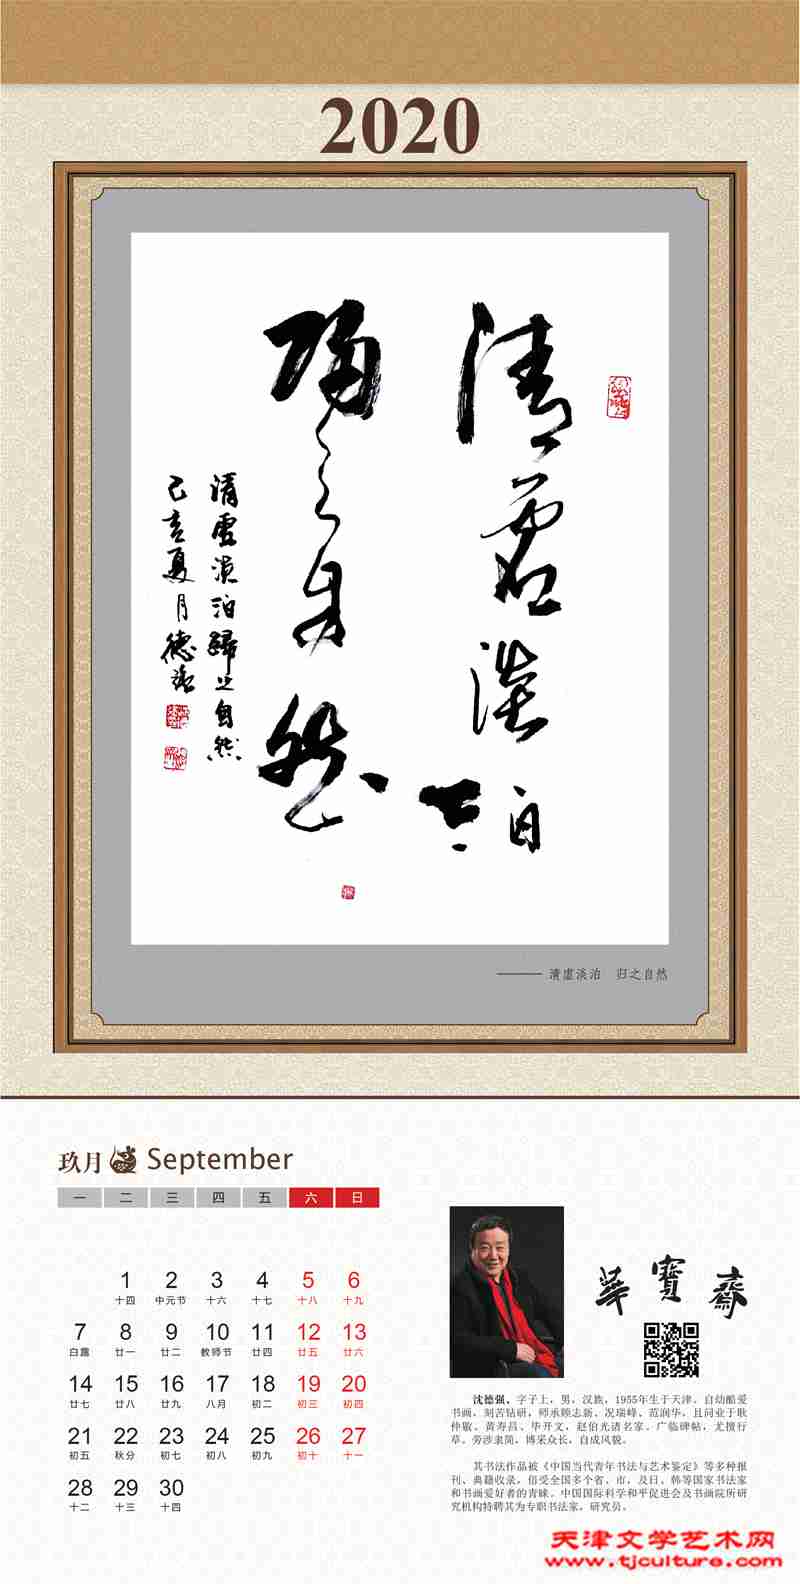 2020
清虚淡泊
归之自然
清虚淡泊歸之自然
己亥夏月德强
——— 清虚淡泊 归之自然
玖月 September
一 二 三 四 五 六 日
1 2 3 4 5 6
十四 中元节 十六 十七 十八 十九
7 8 9 10 11 12 13
白露 廿一 廿二 教师节 廿四 廿五 廿六
14 15 16 17 18 19 20
廿七 廿八 廿九 八月 初二 初三 初四
21 22 23 24 25 26 27
初五 秋分 初七 初八 初九 初十 十一
28 29 30
十二 十三 十四
華寶齋
沈德强,字子上,男,汉族,1955年生于天津。自幼酷爱
书画,刻苦钻研,师承顾志新、况瑞峰、范润华,且问业于耿
仲敭、黄寿昌、毕开文、赵伯光诸名家。广临碑帖,尤擅行
草。旁涉隶简,博采众长,自成风貌。
其书法作品被《中国当代青年书法与艺术鉴定》等多种报
刊、典籍收录,倍受全国多个省、市,及日、韩等国家书法家
和书画爱好者的青睐。中国国际科学和平促进会及书画院所研
究机构特聘其为专职书法家,研究员。
天津文学艺术网
www.tjculture.com